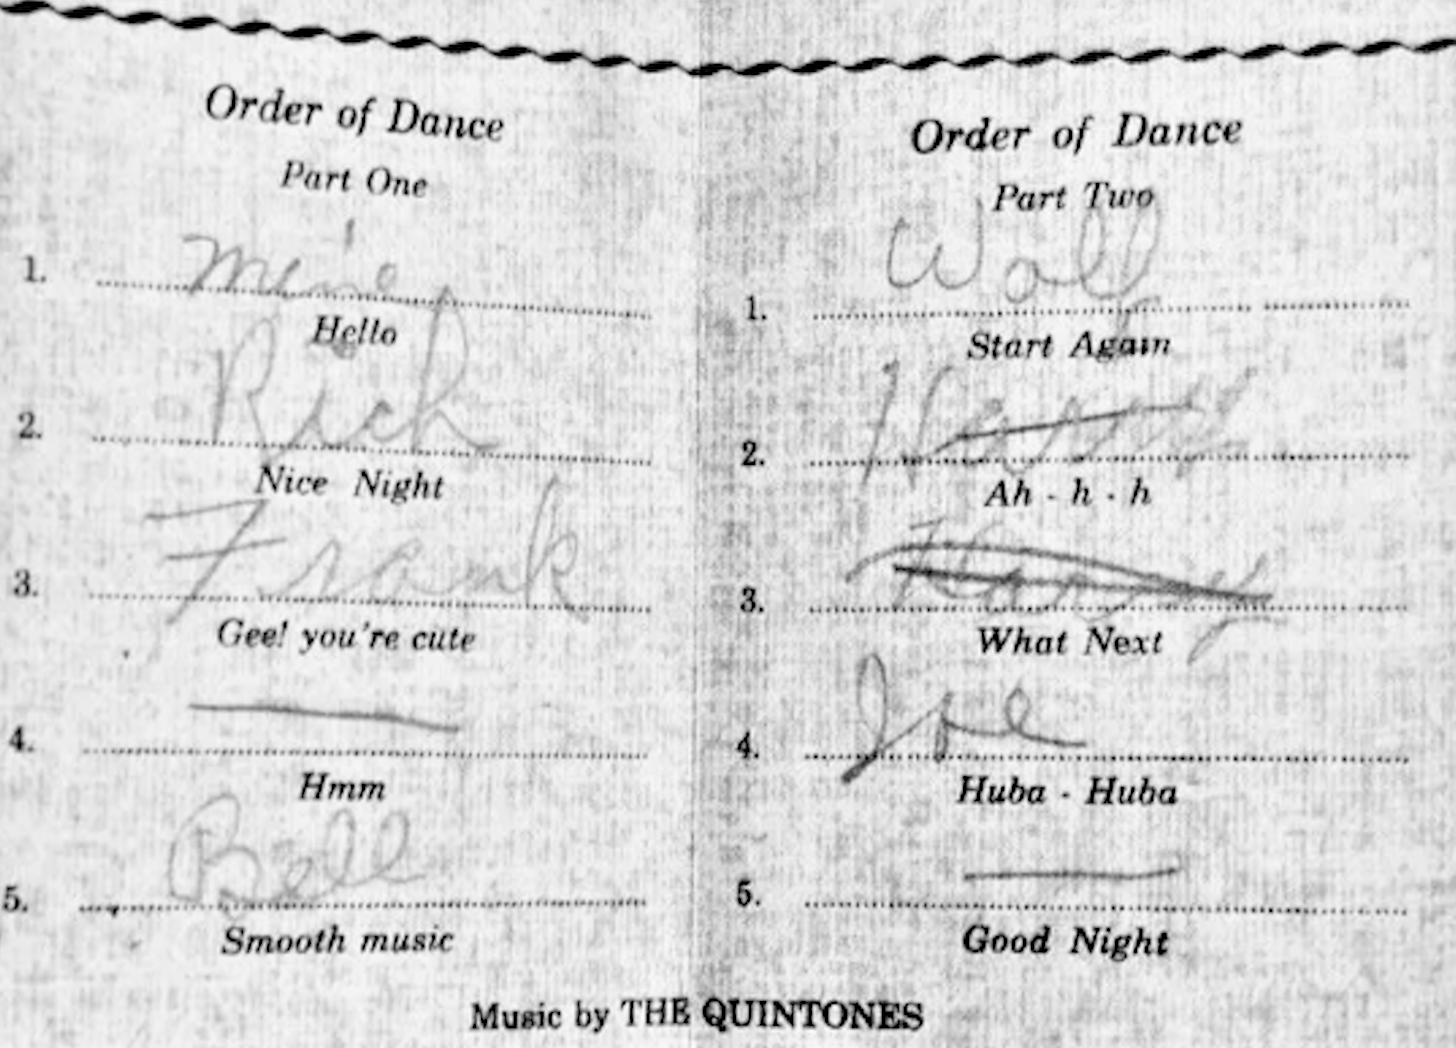 Order of Dance
Part One
1. mine
Hello
2. Rich
Nice Night
3. Frank
Gee! you're cute
4.
Hmm
5. Bell
Smooth music
Order of Dance
Part Two
1. Walt
Start Again
2. Harry
Ah - h - h
3. Harry
What Next
4. Joe
Huba - Huba
5.
Good Night
Music by THE QUINTONES